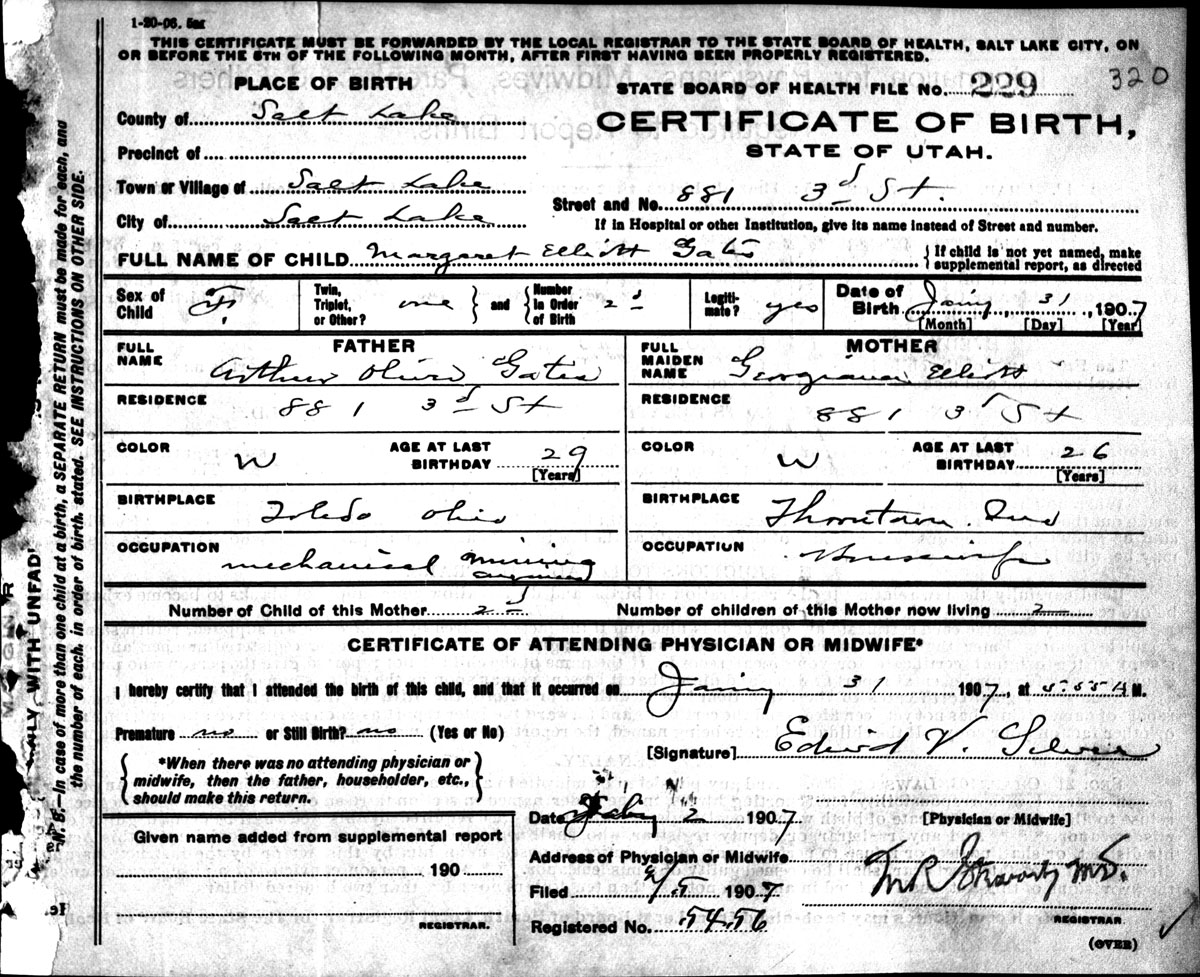 1-20-06. 5m
THIS CERTIFICATE MUST BE FORWARDED BY THE LOCAL REGISTRAR TO THE STATE BOARD OF HEALTH, SALT LAKE CITY, ON
OR BEFORE THE 5TH OF THE FOLLOWING MONTH, AFTER FIRST HAVING BEEN PROPERLY REGISTERED.
PLACE OF BIRTH
STATE BOARD OF HEALTH FILE No. 229 320
County of Salt Lake
CERTIFICATE OF BIRTH,
STATE OF UTAH.
Precinct of
Town or Village of Salt Lake
Street and No. 881 3d St.
City of Salt Lake
If in Hospital or other Institution, give its name instead of Street and number.
FULL NAME OF CHILD Margaret Elliott Gates
{If child is not yet named, make
supplemental report, as directed
Sex of Child F. Twin, Triplet, or Other? one and Number in Order of Birth 2d Legiti-mate? yes Date of Birth Jany, 31, 1907
[Month] [Day] [Year]
FATHER MOTHER
FULL NAME Arthur Oliver Gates
FULL MAIDEN NAME Georgiana Elliott
RESIDENCE 881 3d St
RESIDENCE 881 3d St
COLOR W AGE AT LAST BIRTHDAY 29 [Years]
COLOR W AGE AT LAST BIRTHDAY 26 [Years]
BIRTHPLACE Toledo Ohio
BIRTHPLACE Thorntown Ind
OCCUPATION mechanical mining engineer
OCCUPATION Housewife
Number of Child of this Mother 2d Number of children of this Mother now living 2
CERTIFICATE OF ATTENDING PHYSICIAN OR MIDWIFE*
I hereby certify that I attended the birth of this child, and that it occurred on Jany 31 1907, at 5:55 A M.
Premature no or Still Birth? no (Yes or No)
[Signature] Edwid V. Silver
{*When there was no attending physician or
midwife, then the father, householder, etc.,
should make this return.}
Date 2 1907 [Physician or Midwife]
Given name added from supplemental report
Address of Physician or Midwife
190
Filed 1907
M.D.
REGISTRAR.
Registered No. 5456
REGISTRAR.
(OVER)
N. B.—In case of more than one child at a birth, a SEPARATE RETURN must be made for each, and
the number of each, in order of birth, stated. SEE INSTRUCTIONS ON OTHER SIDE.
WITH UNFAD